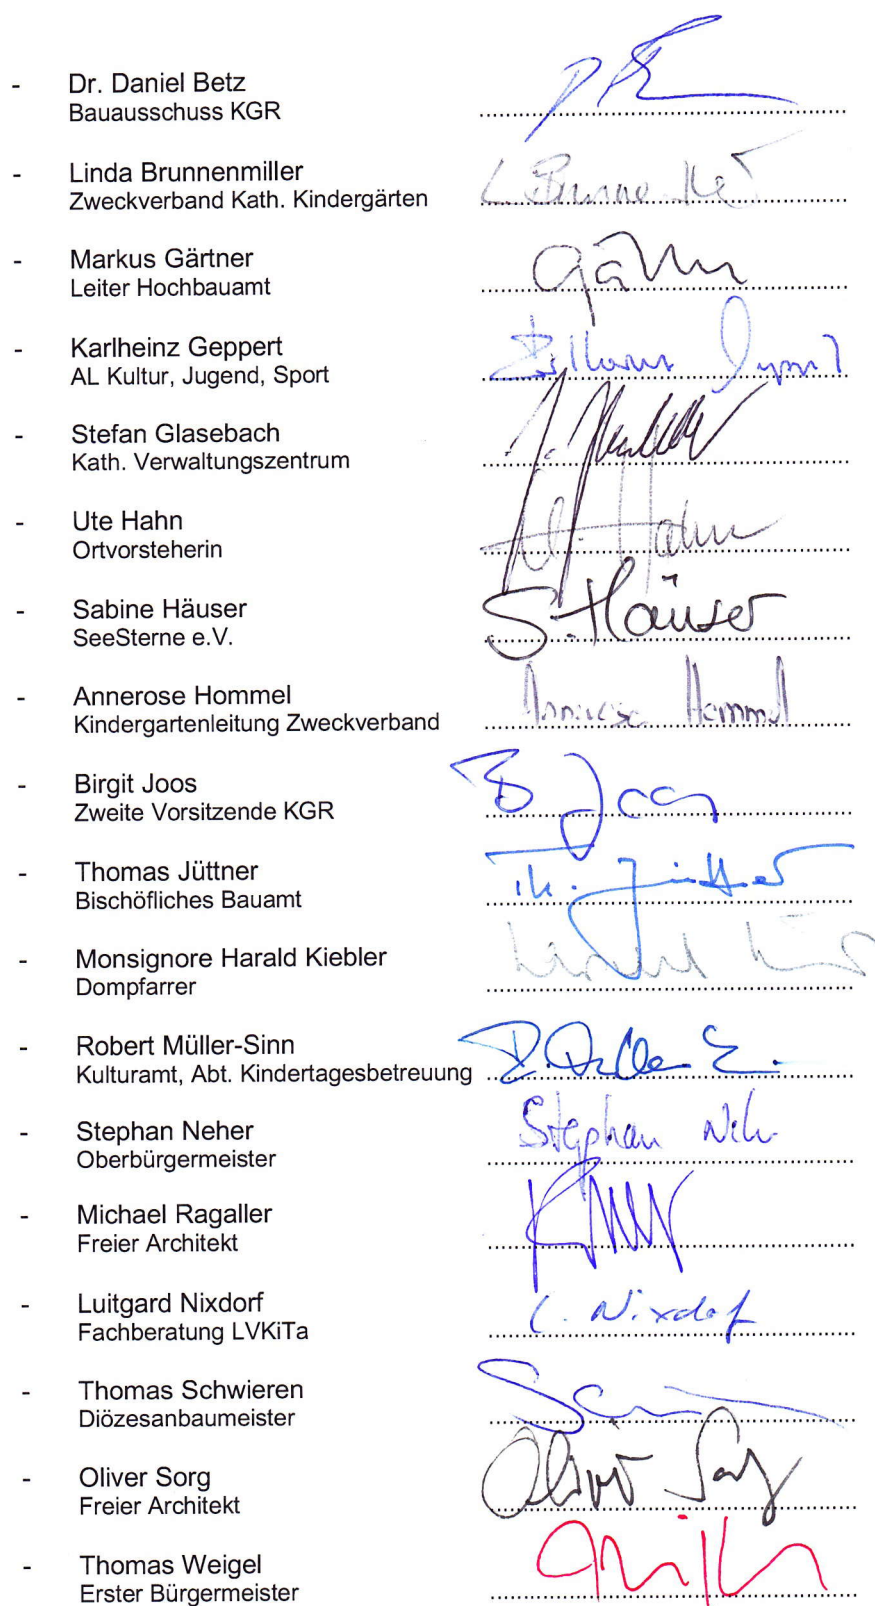 - Dr. Daniel Betz
Bauausschuss KGR
- Linda Brunnenmiller
Zweckverband Kath. Kindergärten
- Markus Gärtner
Leiter Hochbauamt
- Karlheinz Geppert
AL Kultur, Jugend, Sport
- Stefan Glasebach
Kath. Verwaltungszentrum
- Ute Hahn
Ortvorsteherin
U. Hahn
- Sabine Häuser
SeeSterne e.V.
S. Häuser
- Annerose Hommel
Kindergartenleitung Zweckverband
Annerose Hommel
- Birgit Joos
Zweite Vorsitzende KGR
B Joos
- Thomas Jüttner
Bischöfliches Bauamt
Th. Jüttner
- Monsignore Harald Kiebler
Dompfarrer
- Robert Müller-Sinn
Kulturamt, Abt. Kindertagesbetreuung
- Stephan Neher
Oberbürgermeister
Stephan Neher
- Michael Ragaller
Freier Architekt
- Luitgard Nixdorf
Fachberatung LVKiTa
L. Nixdorf
- Thomas Schwieren
Diözesanbaumeister
- Oliver Sorg
Freier Architekt
Oliver Sorg
- Thomas Weigel
Erster Bürgermeister